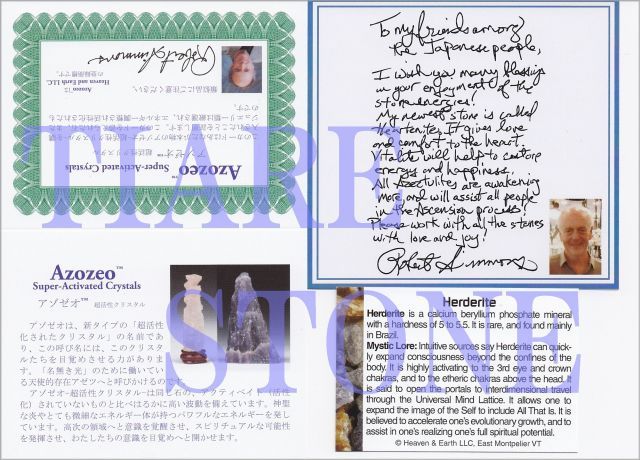 Azozeo™
Super-Activated Crystals
アゾゼオ™ 超活性クリスタル
Azozeo は
Heaven and Earth LLC
の登録商標です。
類似品にご注意ください。
Robert Simmons
To my friends among
the Japanese people,
I wish you many blessings
in your enjoyment of the
stone energies!
My newest stone is called
Heartenite. It gives love
and comfort to the heart.
Vitalite will help to
energy and happiness.
All Azeztulites are awakening
more, and will assist all people
in the Ascension process!
Please work with all the stones
with love and joy!
Robert Simmons
TIARE
STONE
Azozeo™
Super-Activated Crystals
アゾゼオ™ 超活性クリスタル
アゾゼオは、新タイプの「超活性
化されたクリスタル」の名前であ
り、この呼び名には、このクリスタ
ルたちを目覚めさせる力がありま
す。「名無き光」のために働いてい
る天使的存在アゼツへと呼びかけるのです。
アゾゼオ-超活性クリスタル-は同じ石の、アクティベイト（活性
化）されていないものと比べはるかに高い波動を備えています。神聖
な炎やとても微細なエネルギー体が持つパワフルなエネルギーを発し
ています。高次の領域へと意識を覚醒させ、スピリチュアルな可能性
を発揮させ、わたしたちの意識を目覚めへと開かせます。
Herderite
Herderite is a calcium beryllium phosphate mineral
with a hardness of 5 to 5.5. It is rare, and found mainly
in Brazil.
Mystic Lore: Intuitive sources say Herderite can quick-
ly expand consciousness beyond the confines of the
body. It is highly activating to the 3rd eye and crown
chakras, and to the etheric chakras above the head. It
is said to open the portals to interdimensional travel
through the Universal Mind Lattice. It allows one to
expand the image of the Self to include All That Is. It is
believed to accelerate one's evolutionary growth, and to
assist in one's realizing one's full spiritual potential.
© Heaven & Earth LLC, East Montpelier VT